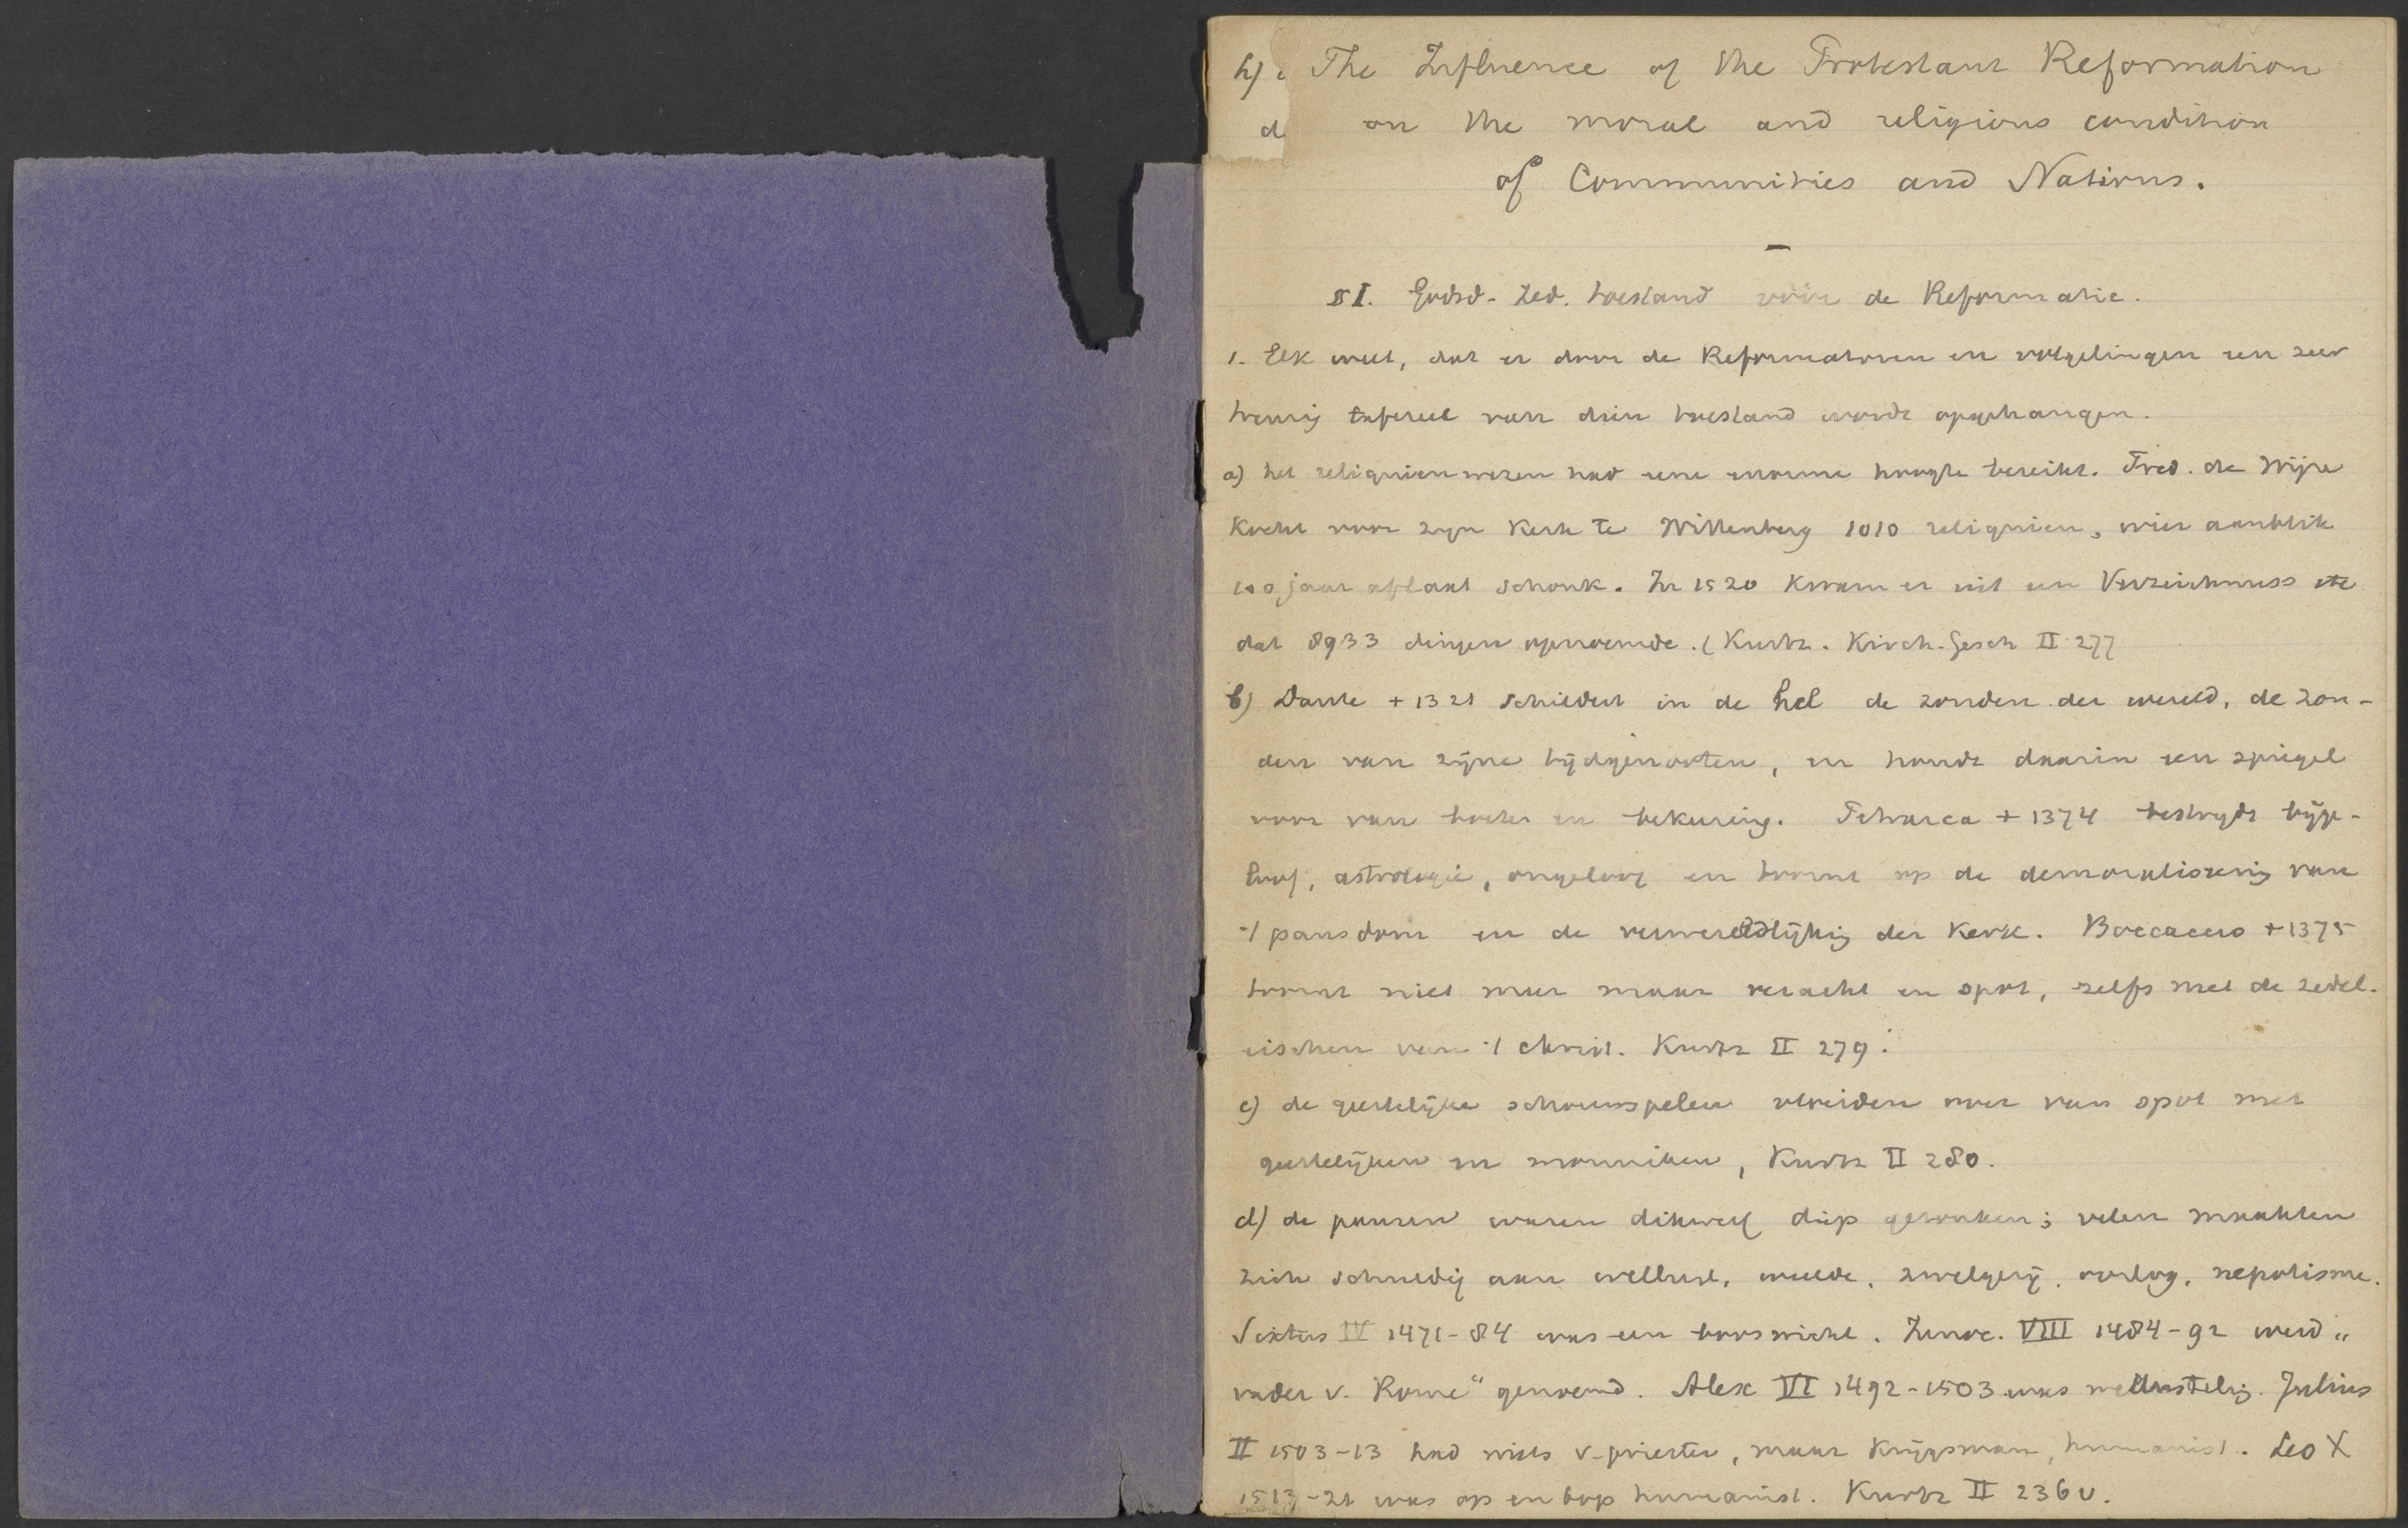 h)
The Influence of the Protestant Reformation
d
on the moral and religious condition
of Communities and Nations.
§ I. Godsd-Zed. toestand vóór de Reformatie.
1. Elk weet, dat er door de Reformatoren en volgelingen een zeer
treurig tafereel van dien toestand wordt opgehangen.
a) het reliquienwezen had eene enorme hoogte bereikt. Fred. de Wijze
kocht voor zijn Kerk te Wittenberg 1010 reliquien, wier aanblik
100 jaar aflaat schonk. In 1520 kwam er uit een Verzeichnuss etc
dat 8933 dingen opnoemde. (Kurtz. Kirch. Gesch II 277
b) Dante + 1321 schildert in de hel de zonden der wereld, de zon-
den van zijne tijdgenooten, en houdt daarin een spiegel
voor van boete en bekeering. Petrarca + 1374 bestrijdt bijge-
loof, astrologie, ongeloof en toornt op de demoraliseering van
't pausdom en de verwereldlijking der Kerk. Boccaccio + 1375
toornt niet meer maar veracht en spot, zelfs met de zedel.
eischen van 't Christ. Kurtz II 279.
c) de geestelijke schouwspelen vloeiden over van spot met
geestelijken en monniken, Kurtz II 280.
d) de pausen waren dikwerf diep gezonken; velen maakten
zich schuldig aan wellust, weelde, zwelgerij, oorlog, nepotisme.
Sixtus IV 1471-84 was een booswicht. Innoc. VIII 1484-92 werd "
vader v. Rome" genoemd. Alex VI 1492-1503 was wellustelig. Julius
II 1503-13 had niets v. priester, maar krijgsman, humanist. Leo X
1513-21 was op en top humanist. Kurtz II 236 v.